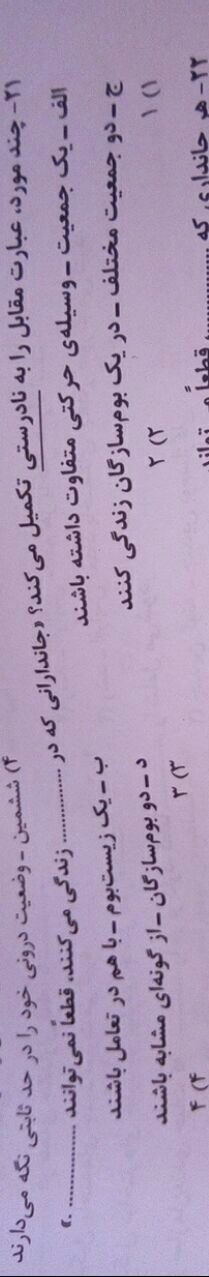 ۴) ششمین - وضعیت درونی خود را در حد ثابتی نگه می‌دارند
۲۱- چند مورد، عبارت مقابل را به نادرستی تکمیل می‌کند؟ «جاندارانی که در .............. زندگی می‌کنند، قطعاً نمی‌توانند .............. .»
الف - یک جمعیت - وسیله‌ی حرکتی متفاوت داشته باشند ب - یک زیست‌بوم - با هم در تعامل باشند
ج - دو جمعیت مختلف - در یک بوم‌سازگان زندگی کنند د - دو بوم‌سازگان - از گونه‌ای مشابه باشند
۱) ۱ ۲) ۲ ۳) ۳ ۴) ۴
۲۲- هر جانداری که .............. قطعاً